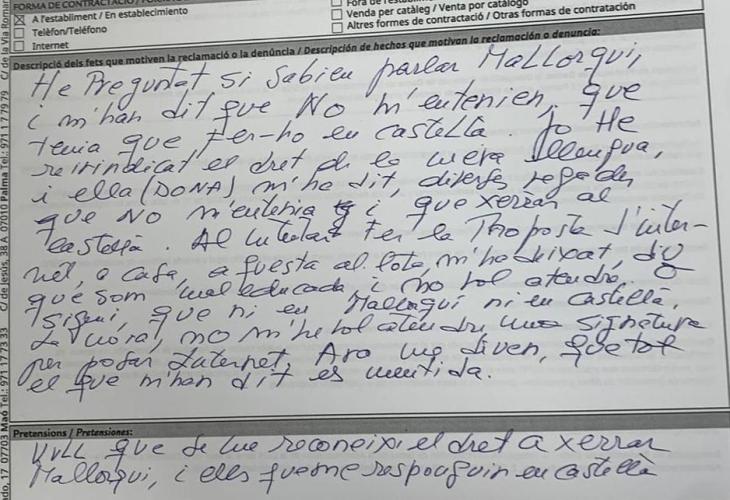 FORMA DE CONTRACTACIÓ /
A l'establiment / En establecimiento
Telèfon/Teléfono
Internet
Venda per catàleg / Venta por catálogo
Altres formes de contractació / Otras formas de contratación
Descripció dels fets que motiven la reclamació o la denúncia / Descripción de hechos que motivan la reclamación o denuncia:
He Preguntat si sabien parlar Mallorquí,
i m'han dit que No m'entenien, que
tenia que fer-ho en castellà. Jo He
reivindicat el dret de la meva lllengua,
i ella (DONA) m'ha dit, diverses vegades
que No m'entenia i que xerràs al
castellà. Al intentar fer la Proposta d'inter-
net, a casa, a m'ha deixat, diu
que som mal educada, i no vol atendre. O
sigui, que ni en Mallorquí ni en Castellà,
no m'ha vol atendre, una signatura
per posar Internet. Ara me diven, que tot
el que m'han dit es mentida.
Pretensions / Pretensiones:
Vull que se me reconeixi el dret a xerrar
Mallorquí, i ells que me responguin en castellà
C/ de la Via Roman
C/ de Jesús, 38 A. 07010 Palma Tel.: 971 17 79 79
17 07703 Maó Tel.: 971 17 73 33